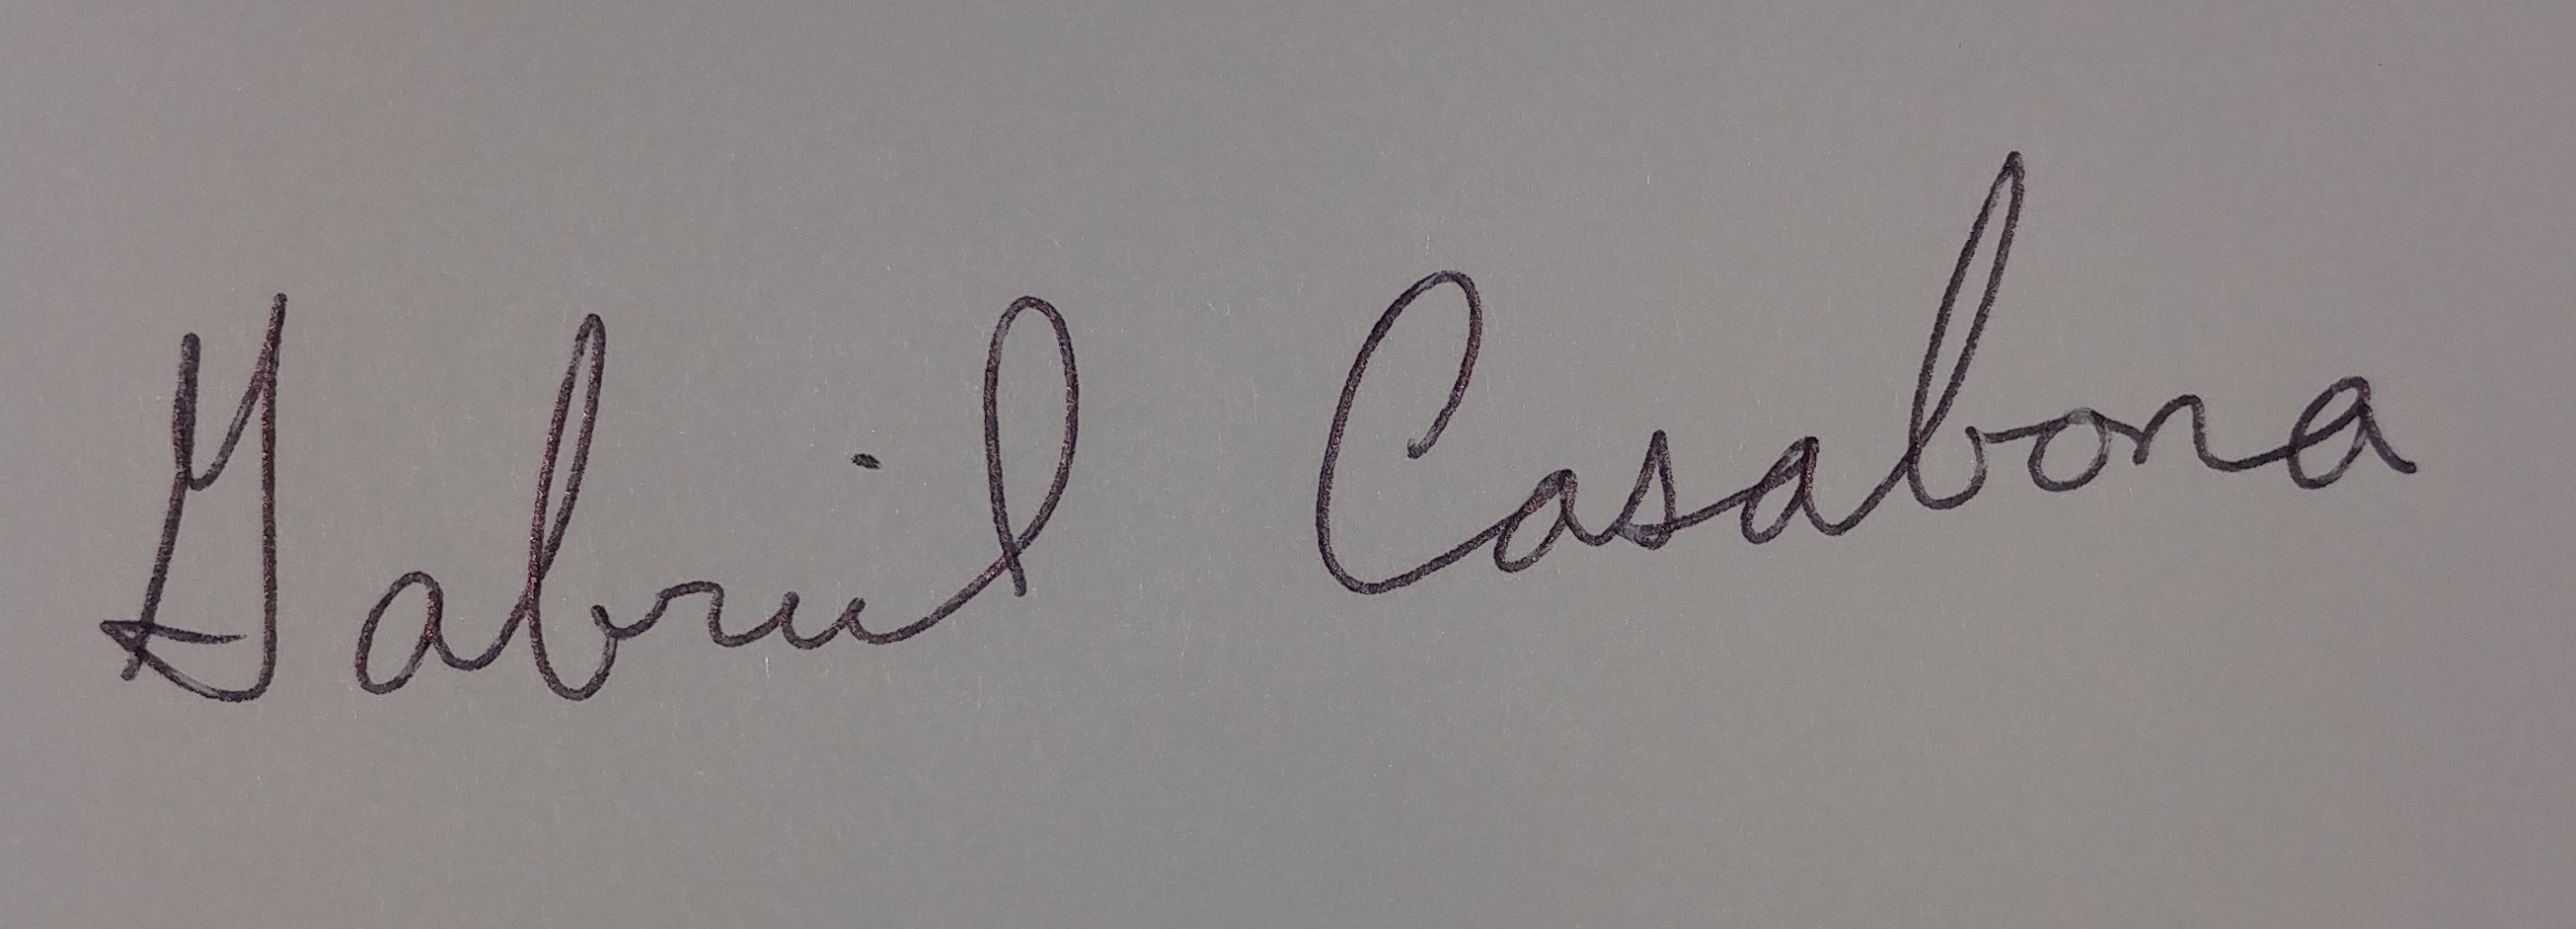 Gabriel Casabona